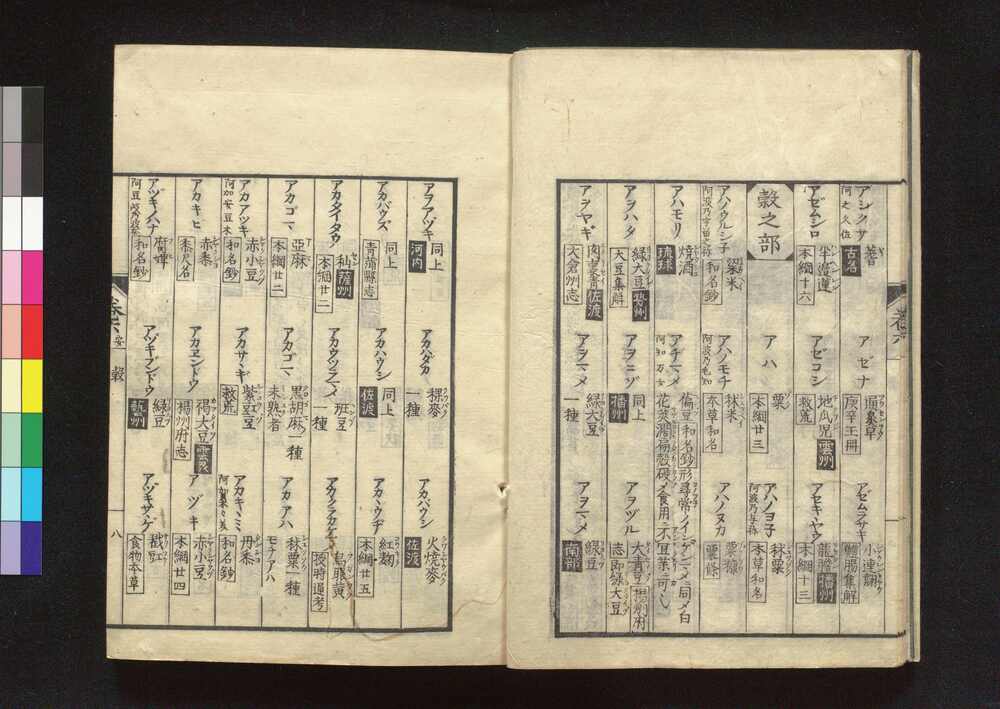 アシクサ 蓍 古名
阿之久佐
アゼナ 通泉草 庚辛玉冊
アゼムラサキ 小連翹 鱧腸集解
アゼムシロ 半邊蓮 本綱十六
アゼコシ 地瓜児 雲州 救荒
アセキヤウ 龍膽 播州 本綱十三
穀之部
アハ 粟 本綱廿三
アハノヨ子 秫粟 本草和名
アハノウルシ子 粱米 和名鈔
アハノモチ 秫米 本草和名
阿波乃毛知
アハノヌカ 粟糠 粟條
アハモリ 焼酒 琉球
アヂマメ 藊豆和名鈔形尋常ノインゲンマメニ同メ白
阿知万女 花莢濶扁殻硬メ食用ニ不宜葉ニ可シ
アヲハダ 緑大豆 藝州 大豆集解
アヲニゴ 同上 播州
アヲヅル 大青豆揚州府志即緑大豆
アヲヤギ 肉裏青 佐渡 太倉州志
アヲマメ 緑大豆 一種
アヲマメ 緑豆 南部
アヲアヅキ 同上 河内
アカハダカ 稞麥 一種
アカバウシ 火燒麥 佐渡
アカバウズ 同上 青蒲縣志
アカハウシ 同上 佐渡
アカヽウヂ 紅麹 本綱廿五
アカダイタウ 秈 薩州 本綱廿二
アカウヅラマメ 斑豆 一種
アカラカケ 烏眼黄 授時通考
アカゴマ 亞麻 本綱廿二
アカゴマ 黒胡麻一種 未熟者
アカアハ 秫粟一種 モチアハ
アカアツキ 赤小豆 和名鈔
阿加安豆木
アカサヽギ 紫豇豆 救荒
アカキミ 丹黍 和名鈔
アカキヒ 赤黍 黍釈名
アカヱンドウ 褐大豆 雲州 揚州府志
アヅキ 赤小豆 本綱廿四
アヅキノハナ 腐婢 和名鈔
アヅキブンドウ 緑豆 藝州
アヅキサヽゲ 戩豇 食物本草
巻六 安 穀 八